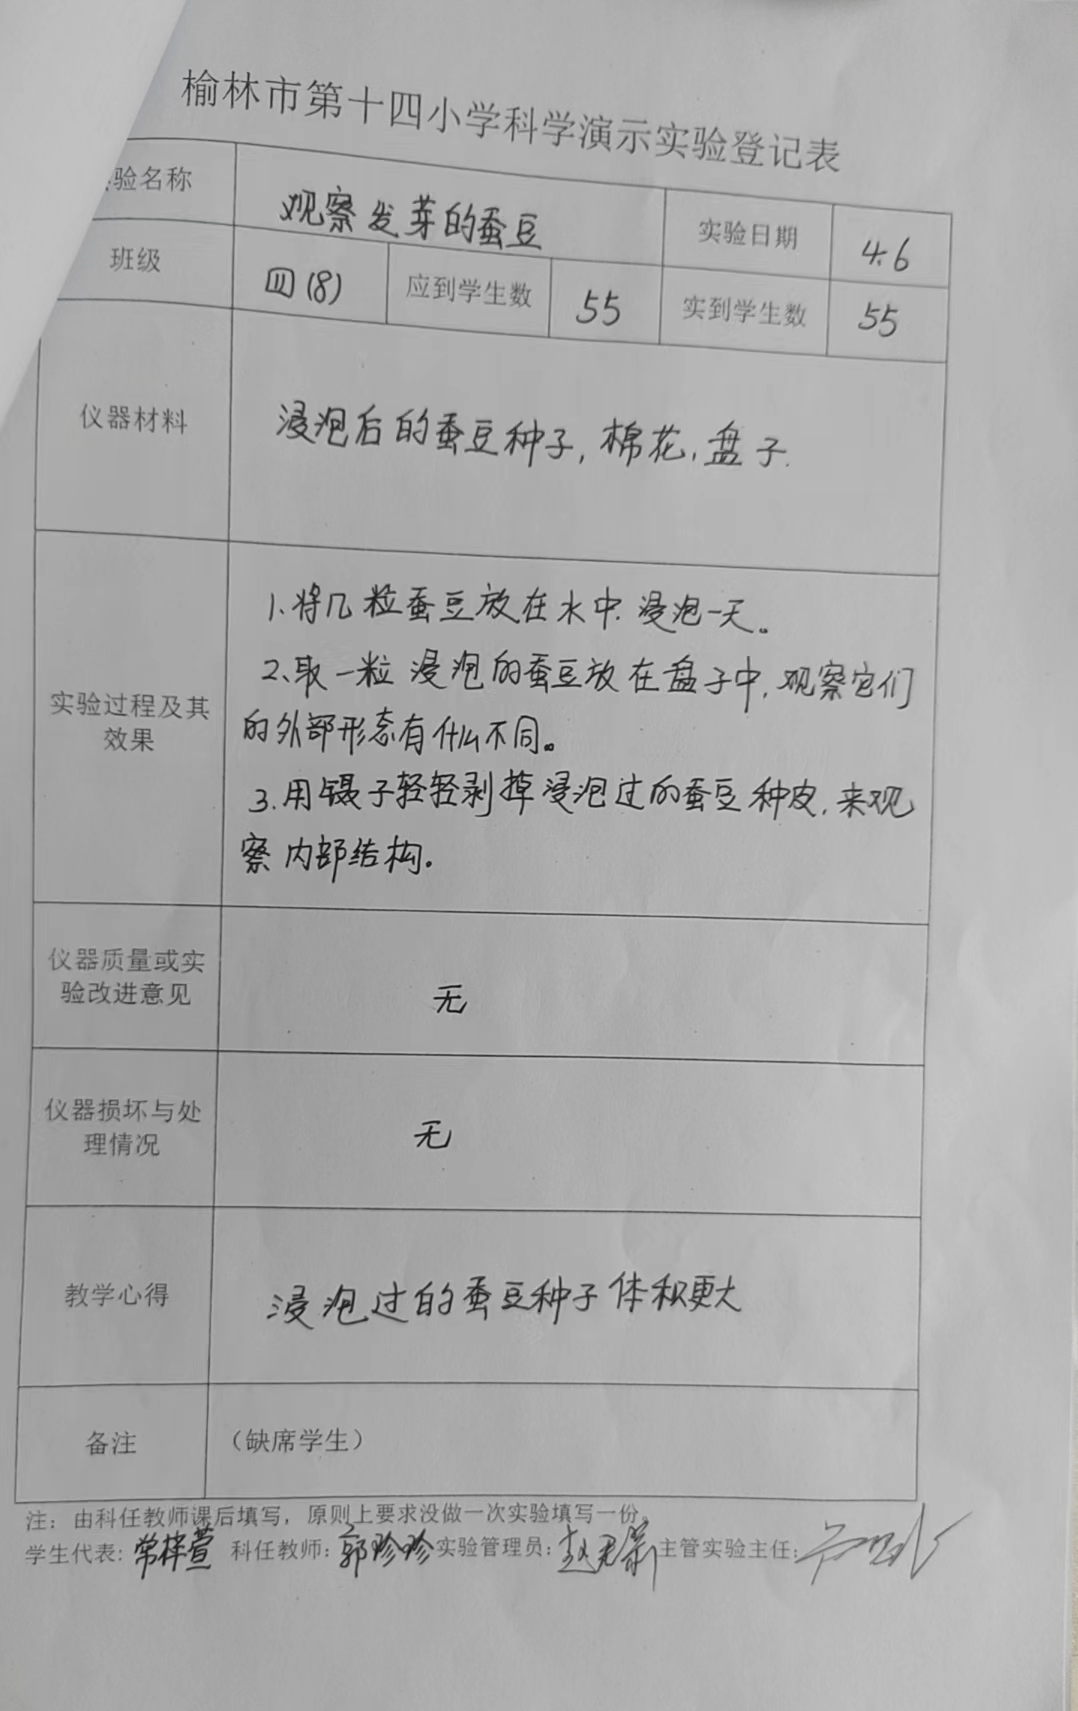 榆林市第十四小学科学演示实验登记表
验名称 观察发芽的蚕豆 实验日期 4.6
班级 四(8) 应到学生数 55 实到学生数 55
仪器材料 浸泡后的蚕豆种子,棉花,盘子.
1.将几粒蚕豆放在水中.浸泡一天。
2、取一粒浸泡的蚕豆放在盘子中,观察它们
实验过程及其
效果
的外部形态有什么不同。
3.用镊子轻轻剥掉浸泡过的蚕豆种皮,来观
察内部结构.
仪器质量或实
验改进意见
无
仪器损坏与处
理情况
无
教学心得 浸泡过的蚕豆种子体积更大
备注 （缺席学生）
注：由科任教师课后填写，原则上要求没做一次实验填写一份。
学生代表: 常梓萱 科任教师: 郭珍珍 实验管理员: 主管实验主任: